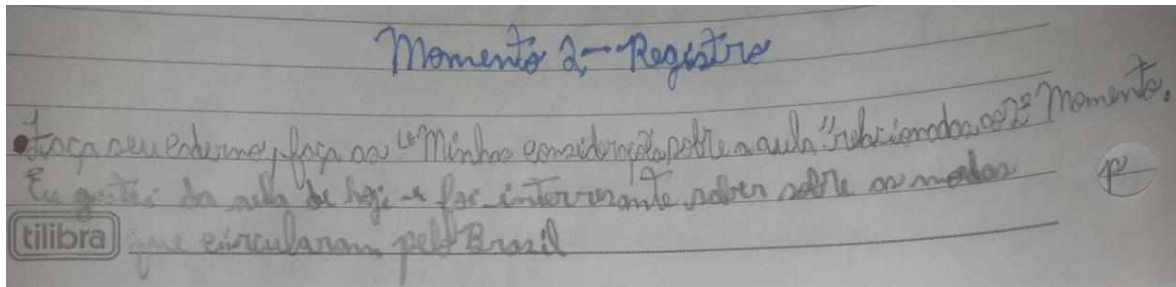 Momento 2 - Registro
• Faça seu caderno, faça as "Minhas considerações sobre a aula" relacionadas ao 2º Momento.
Eu gostei da aula de hoje e foi interresante saber sobre as moedas
que circularam pelo Brasil
tilibra